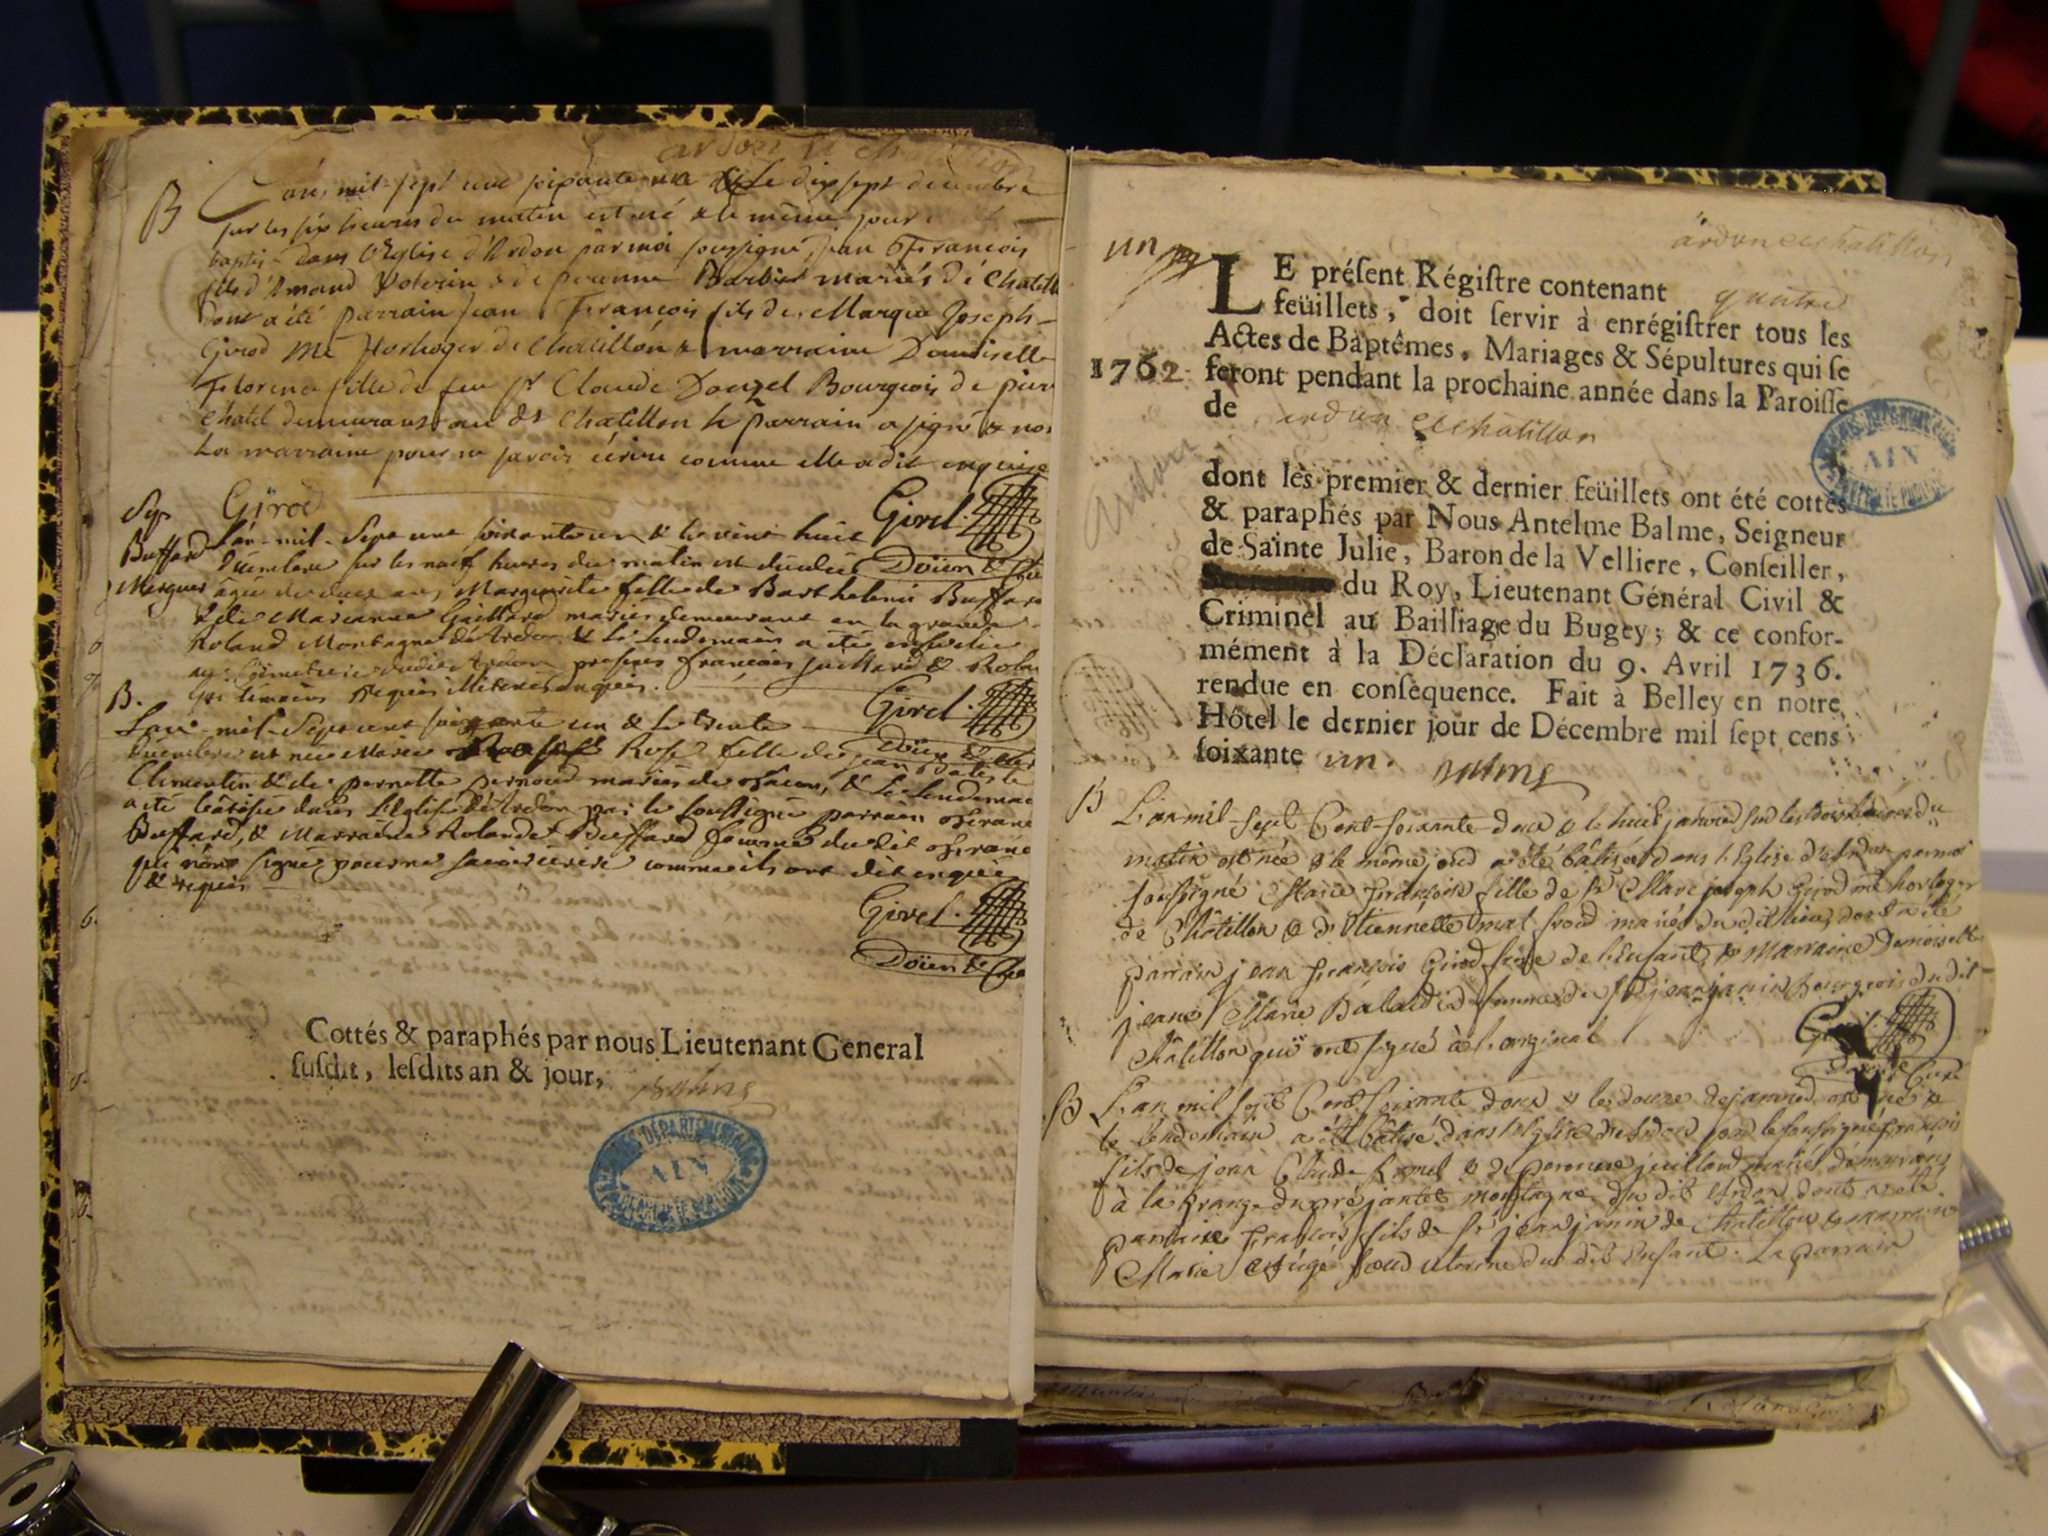 ardon et chatillon
B L'an mil sept cent soixante un & Le dix sept decembre
sur les six heures du matin est né & le même jour
baptisé dans l'Eglise d'Ardon par moi soussigné, jean François
fils d'Amand & de peronne Barbier mariés de Chatill
dont a été parrain jean François fils de Marque Joseph
Girod Me Horloger de Chatillon & marraine Demoiselle
fille de feu sr Claude Douzel Bourgeois de
Chatel demeurant au dt Chatillon le parrain a signé & non
La marraine pour ne savoir écrire comme elle a dit enquise
Girod
Girel.
Doïen & Cu
Sep. L'an mil Sept cent soixante un & le vint huit
Buffard Decembre sur les neuf heures du matin est décédée
âgée de deux ans, Marguerite fille de Barthelemi Buffard
& de Marianne Gaillard mariés demeurant en la grande
Roland Montagne d'Ardon & Le lendemain a été ensevelie
au Cimetiere dudit Ardon presens françois & Rolan
temoins requis Illiterés enquis.
Girel.
Doïen & Cu
B. L'an mil Sept cent soixante un & Le trente
Decembre est née Marie Rose fille de jean Batiste
Clementin & de pernette pernoud mariés de & Le Lendemain
a été bâtisée dans L'Eglise d'Ardon par le soussigné parrain
Buffard, & Marraine Rolande Buffard femme du dit
qui n'ont signé pour ne savoir écrire comme ils ont dit enquis
& requis
Girel.
Doïen & Cu
Cottés & paraphés par nous Lieutenant General
susdit, lesdits an & jour,
Balme
ARCHIVES DÉPARTEMENTALES
AIN
ardon et chatillon
un
LE présent Régistre contenant quatre
feüillets, doit servir à enrégistrer tous les
Actes de Baptêmes, Mariages & Sépultures qui se
1762 feront pendant la prochaine année dans la Paroisse
de ardon et chatillon
AIN
Ardon
dont les premier & dernier feüillets ont été cottés
& paraphés par Nous Antelme Balme, Seigneur
de Sainte Julie, Baron de la Velliere, Conseiller,
du Roy, Lieutenant Général Civil &
Criminel au Bailliage du Bugey; & ce confor-
mément à la Déclaration du 9. Avril 1736.
rendue en conséquence. Fait à Belley en notre
Hôtel le dernier jour de Décembre mil sept cens
soixante un. Balme
B L'an mil Sept Cent Soixante deux & le huit janvier sur les trois heures du
matin est née & le même jour a été bâtisée dans l'Eglise d'Ardon par moi
soussigné Marie Françoise fille de Sr Marc joseph Girod me horloger
de Châtillon & d'Etiennette mariés du dit lieu, dont a été
parrain jean françois Girod frère de l'Enfant, & Marraine Demoiselle
jeane Marie femme de Sr jean janin bourgeois du dit
Châtillon qui ont signé à l'original
Girel.
Curé
B L'an mil Sept Cent Soixante deux & le douze de janvier est né &
le lendemain a été bâtisé dans l'Eglise d'Ardon par le soussigné françois
fils de jean Claude & de peronne mariés demeurans
à la Grange du pré montagne du dit Ardon dont a été
parrain François fils de Sr jean janin de Chatillon & marraine
Marie soeur uterine du dit Enfant. Le parrain